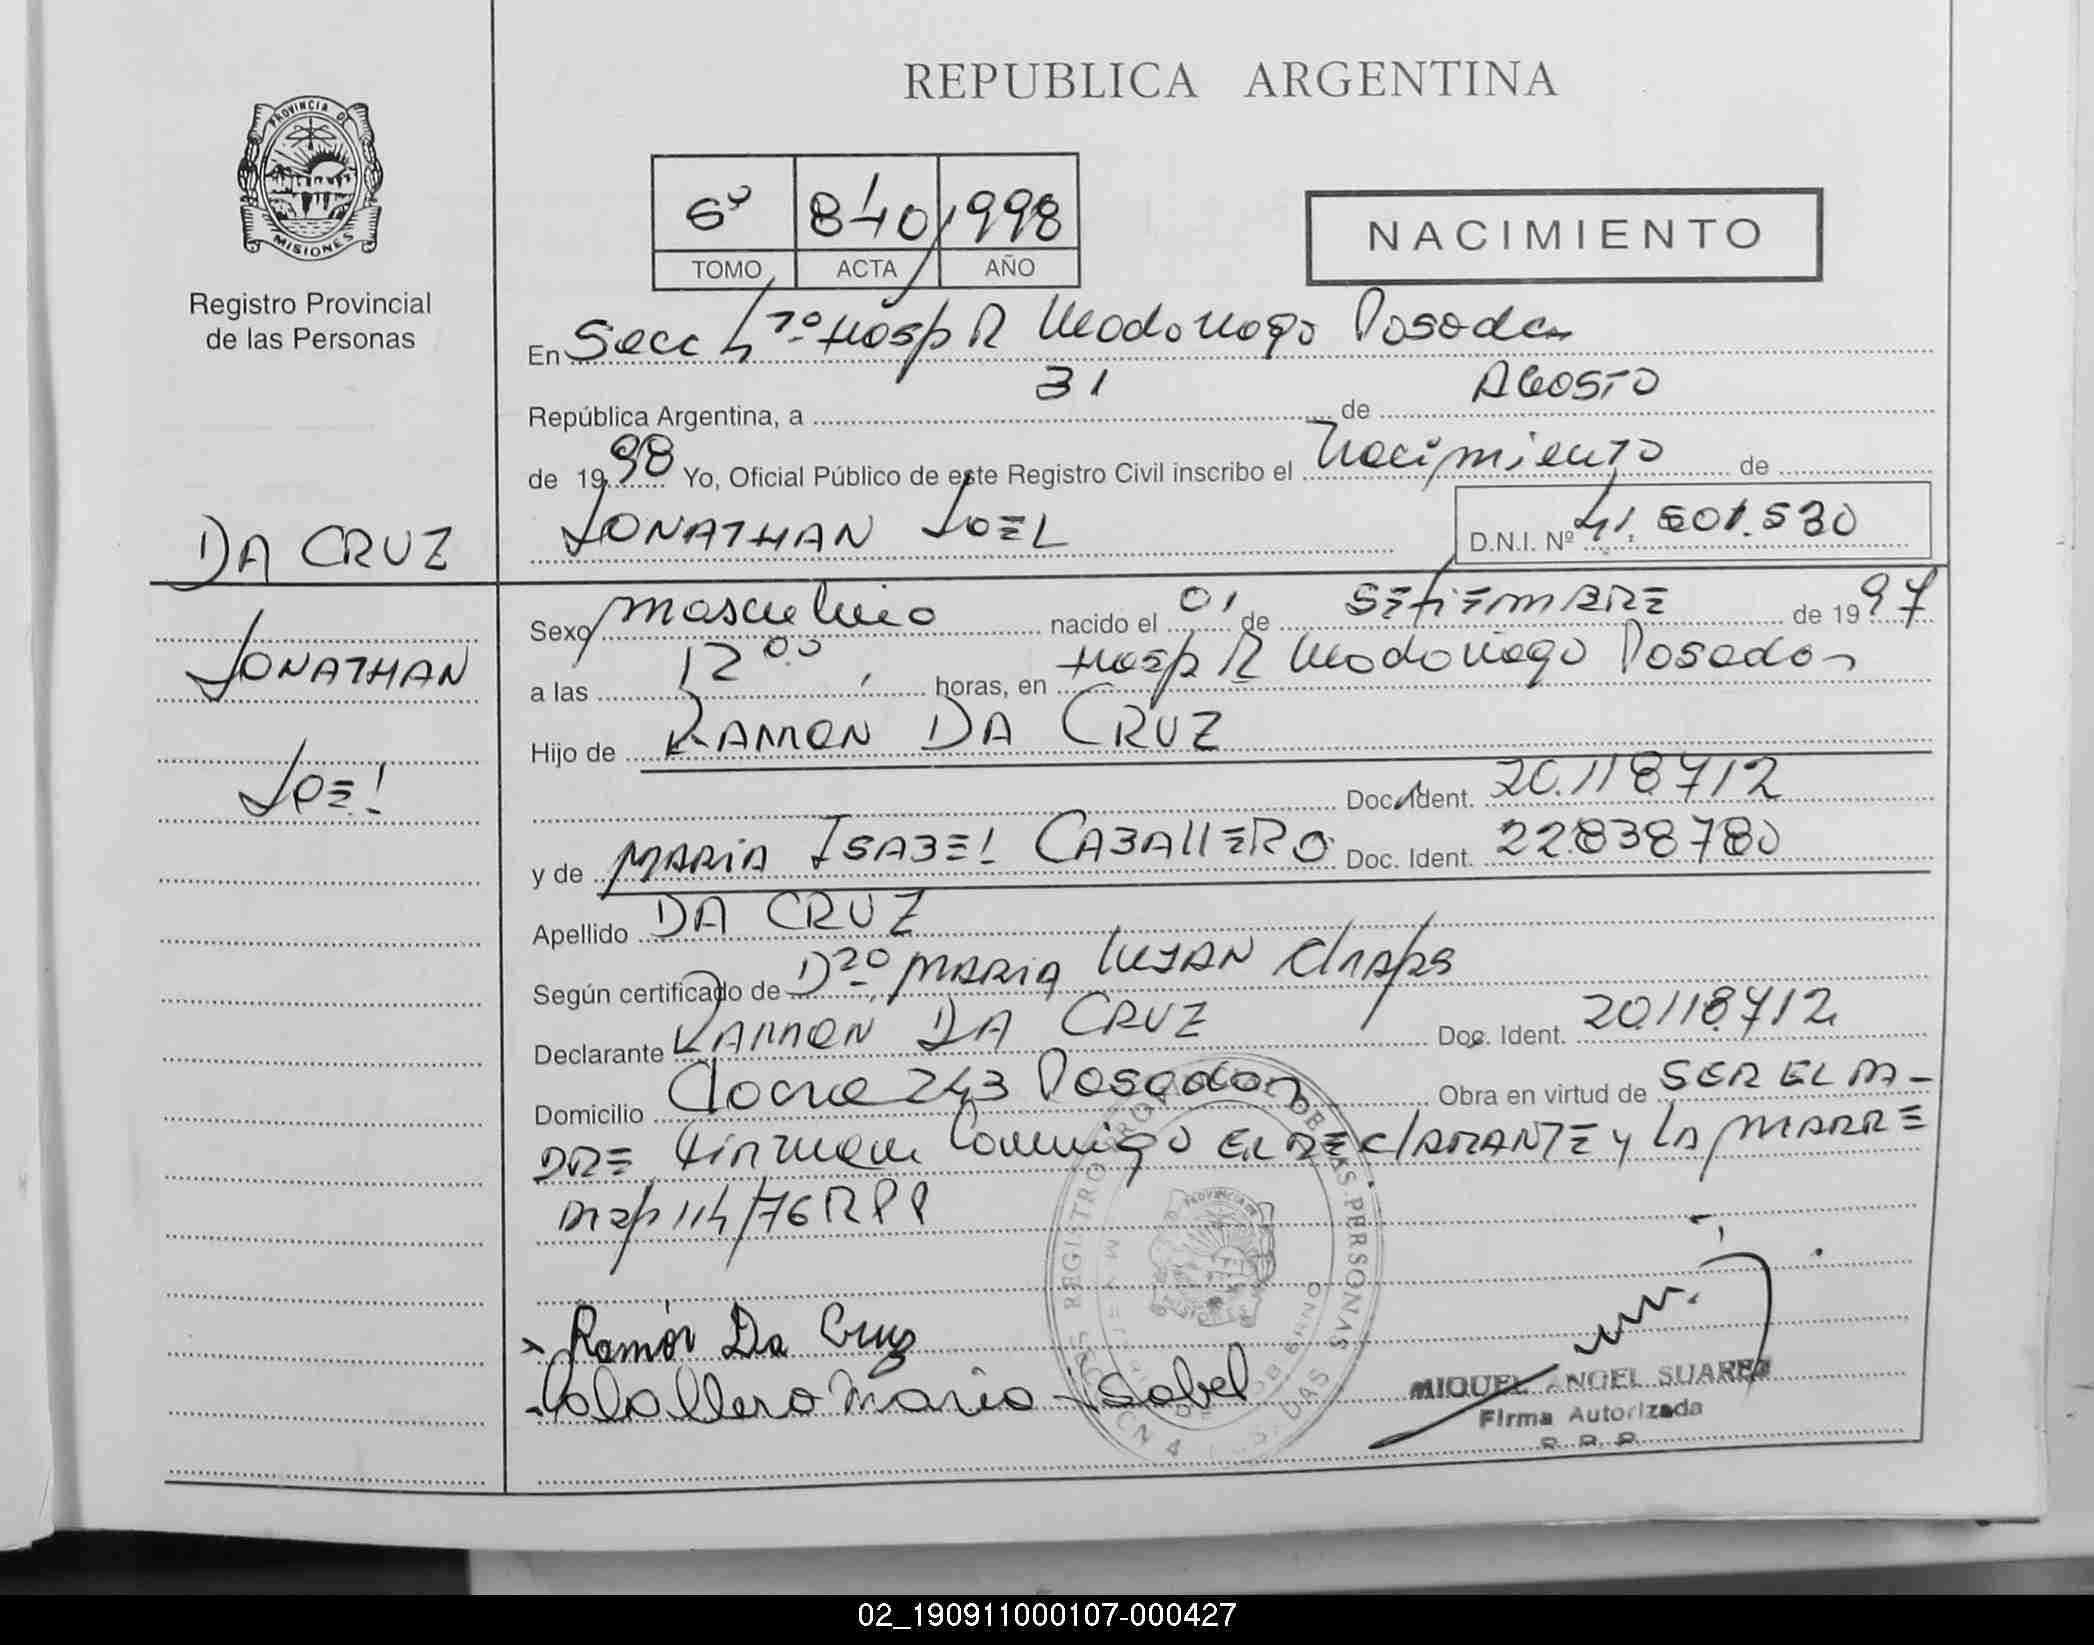 REPUBLICA ARGENTINA
PROVINCIA DE
MISIONES
Registro Provincial
de las Personas
6º 840 1998
TOMO ACTA AÑO
NACIMIENTO
En Secc 4ta Hosp R Madariaga Posadas
República Argentina, a 31 de AGOSTO
de 1998 Yo, Oficial Público de este Registro Civil inscribo el Nacimiento de
JONATHAN JOEL
D.N.I. Nº 41.601.530
DA CRUZ
JONATHAN
JOEl
Sexo masculino nacido el 01 de SETIEMBRE de 1997
a las 12 00 horas, en Hosp R Madariaga Posadas
Hijo de RAMON DA CRUZ
Doc. Ident. 20.118712
y de MARIA ISABEl CABAllERO Doc. Ident. 22838780
Apellido DA CRUZ
Según certificado de Dra MARIA LUJAN
Declarante RAMON DA CRUZ Doc. Ident. 20118712
Domicilio 243 Posadas Obra en virtud de SER EL PA-
DRE Firman Conmigo EL DEClARANTE y LA MADRE
Disp 114/76 RPP
Ramón Da Cruz
Caballero Maria isabel
MIGUEL ANGEL SUAREZ
Firma Autorizada
R. P. P.
02_190911000107-000427